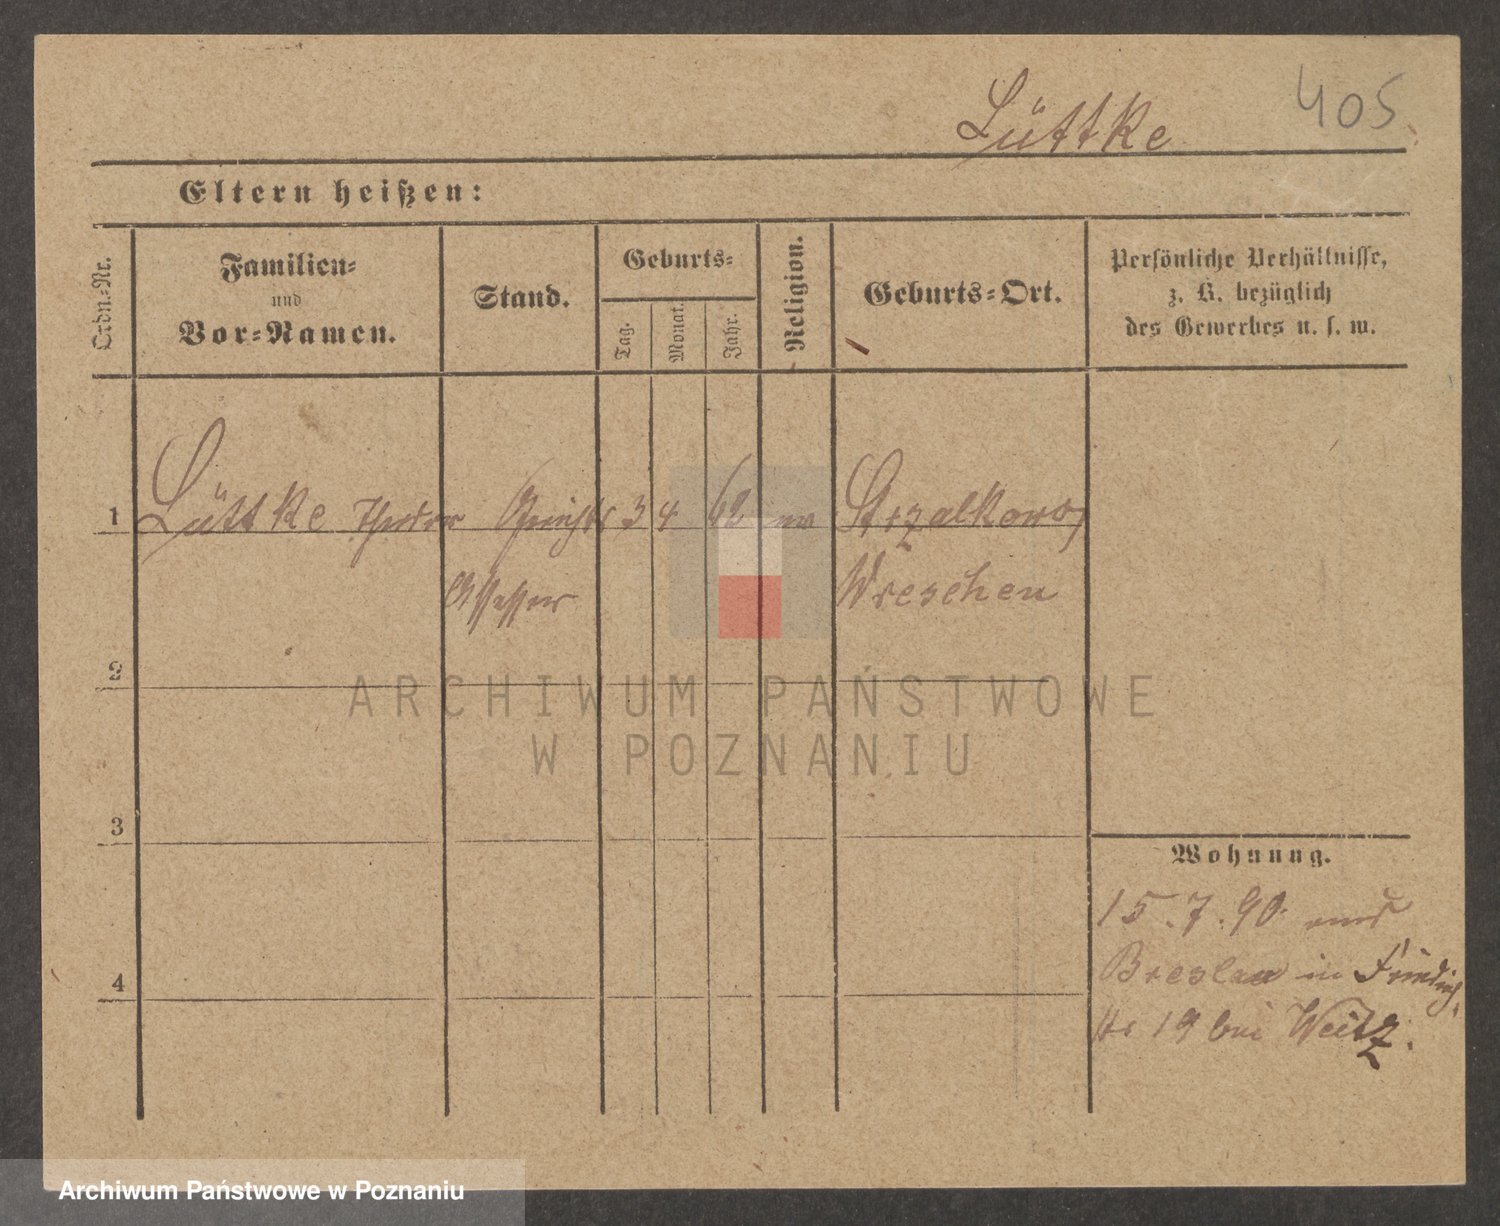 Lüttke 405
Eltern heißen:
Ordn.-Nr.
Familien-
und
Vor-Namen.
Stand.
Geburts-
Tag.
Monat.
Jahr.
Religion.
Geburts-Ort.
Persönliche Verhältnisse,
z. B. bezüglich
des Gewerbes u. s. w.
1 Lüttke Theodor Gerichts 3 4 62 ev Strzalkowo
Assessor Wreschen
2
ARCHIWUM PAŃSTWOWE
W POZNANIU
3
Wohnung.
15.7.90 aus
Breslau in Friedrich
4
str 19 bei Weitz.
Archiwum Państwowe w Poznaniu